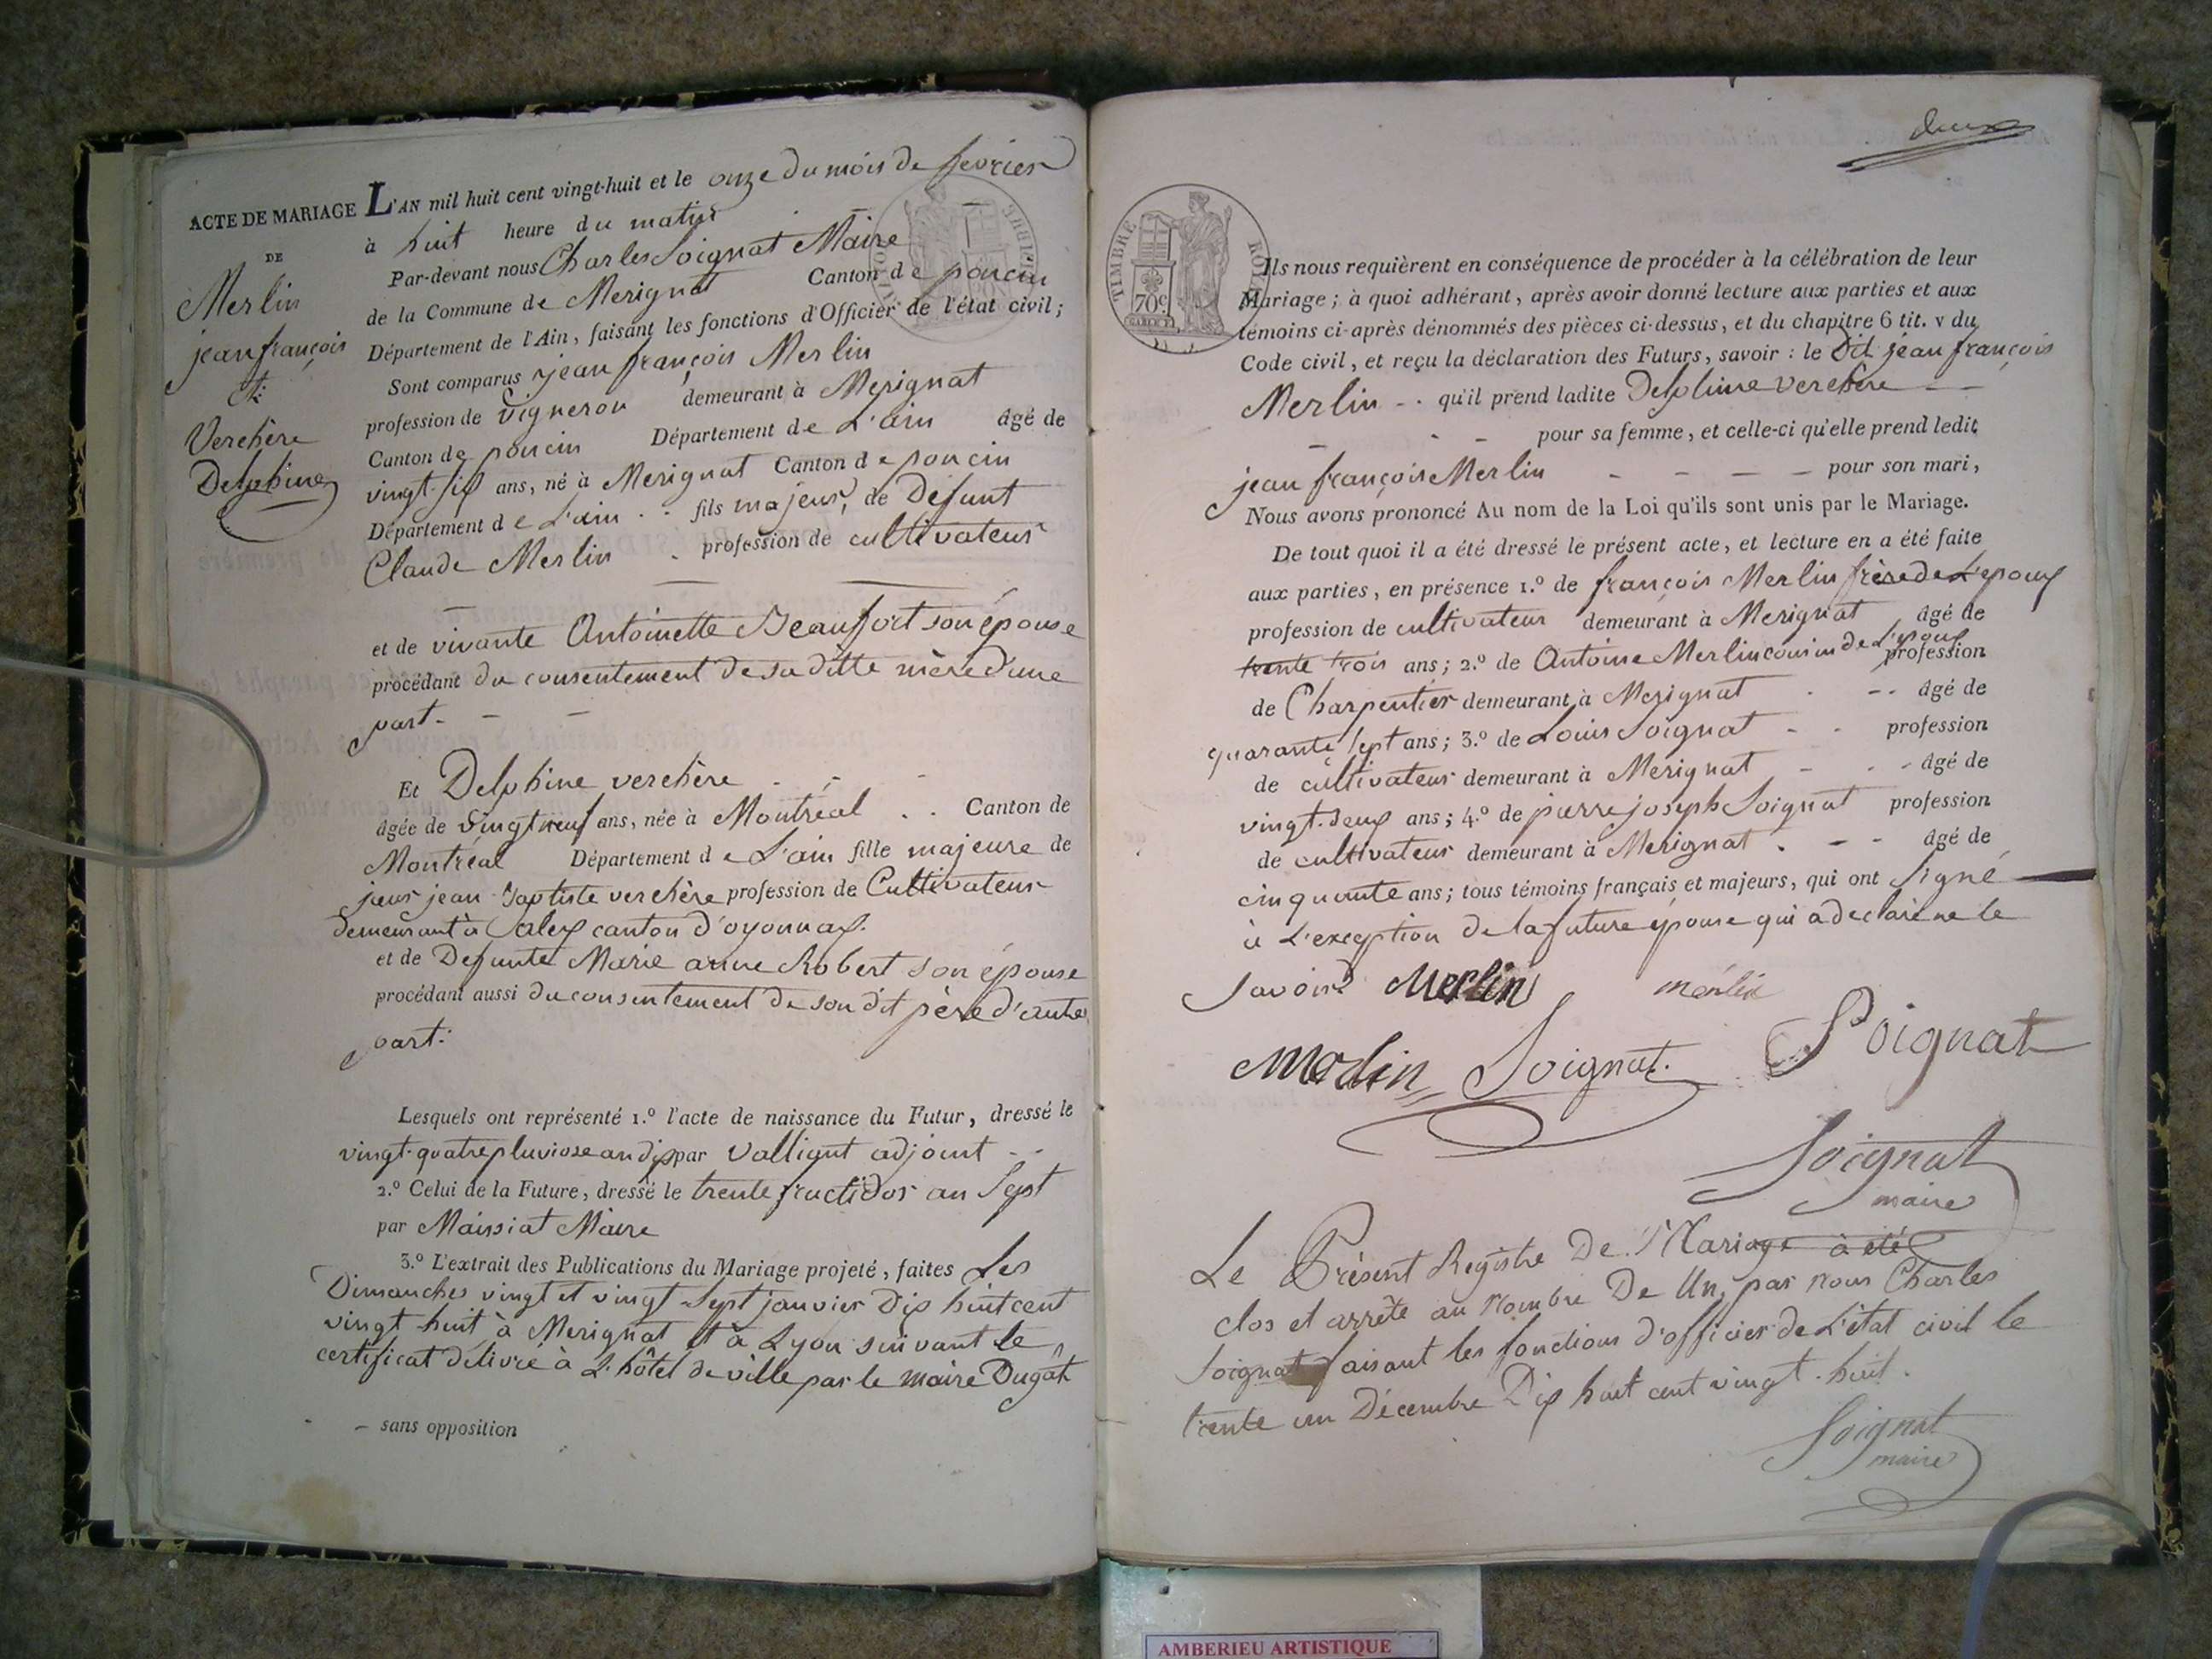 ACTE DE MARIAGE L'AN mil huit cent vingt-huit et le onze du mois de fevrier
DE
Merlin
jean françois
et
Verchère
Delphine
à huit heure du matin
Par-devant nous Charles Soignat Maire
de la Commune de Merignat Canton de poncin
Département de l'Ain, faisant les fonctions d'Officier de l'état civil;
Sont comparus jean françois Merlin
profession de vigneron demeurant à Merignat
Canton de poncin Département de L'ain âgé de
vingt-six ans, né à Merignat Canton de poncin
Département de L'ain fils majeur, de Defunt
Claude Merlin profession de cultivateur
et de vivante Antoinette Beaufort son épouse
procédant du consentement de sa ditte mère d'une
part
Et Delphine verchère
âgée de vingt neuf ans, née à Montréal Canton de
Montréal Département de L'ain fille majeure de
jean Baptiste verchère profession de Cultivateur
demeurant à canton d'oyonnax.
et de Defunte Marie anne Robert son épouse
procédant aussi du consentement de son dit père d'autre
part.
Lesquels ont représenté 1.º l'acte de naissance du Futur, dressé le
vingt-quatre pluviose an dix par Valliant adjoint
2.º Celui de la Future, dressé le trente fructidor an Sept
par Maissiat Maire
3.º L'extrait des Publications du Mariage projeté, faites Les
Dimanches vingt et vingt Sept janvier Dix huit cent
vingt-huit à Merignat et à Lyon suivant le
certificat délivré à L'hôtel de ville par le maire Dugât
sans opposition
deux
TIMBRE ROYAL
70c
Ils nous requièrent en conséquence de procéder à la célébration de leur
Mariage; à quoi adhérant, après avoir donné lecture aux parties et aux
témoins ci-après dénommés des pièces ci-dessus, et du chapitre 6 tit. v du
Code civil, et reçu la déclaration des Futurs, savoir: le Dit jean françois
Merlin qu'il prend ladite Delphine verchère
pour sa femme, et celle-ci qu'elle prend ledit
jean françois Merlin pour son mari,
Nous avons prononcé Au nom de la Loi qu'ils sont unis par le Mariage.
De tout quoi il a été dressé le présent acte, et lecture en a été faite
aux parties, en présence 1.º de françois Merlin frère de L'epoux
profession de cultivateur demeurant à Merignat âgé de
trente trois ans; 2.º de Antoine Merlin cousin de L'epoux profession
de Charpentier demeurant à Merignat âgé de
quarante Sept ans; 3.º de Louis Soignat profession
de cultivateur demeurant à Merignat âgé de
vingt-deux ans; 4.º de pierre joseph Soignat profession
de cultivateur demeurant à Merignat âgé de
cinquante ans; tous témoins français et majeurs, qui ont Signé
à L'exception de la future épouse qui a declaré ne le
Savoir Merlin merlin
Merlin Soignat. Soignat
Soignat
maire
Le Présent Registre De Mariage à été
clos et arrêté au nombre De Un, par nous Charles
Soignat faisant les fonctions d'officier de L'état civil le
trente un Décembre Dix huit cent vingt-huit.
Soignat
maire
AMBERIEU ARTISTIQUE